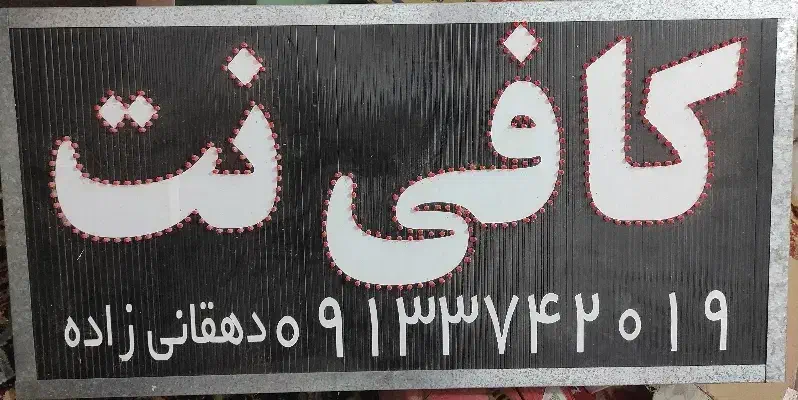 کافی نت
۰۹۱۳۳۷۴۲۰۱۹ دهقانی زاده